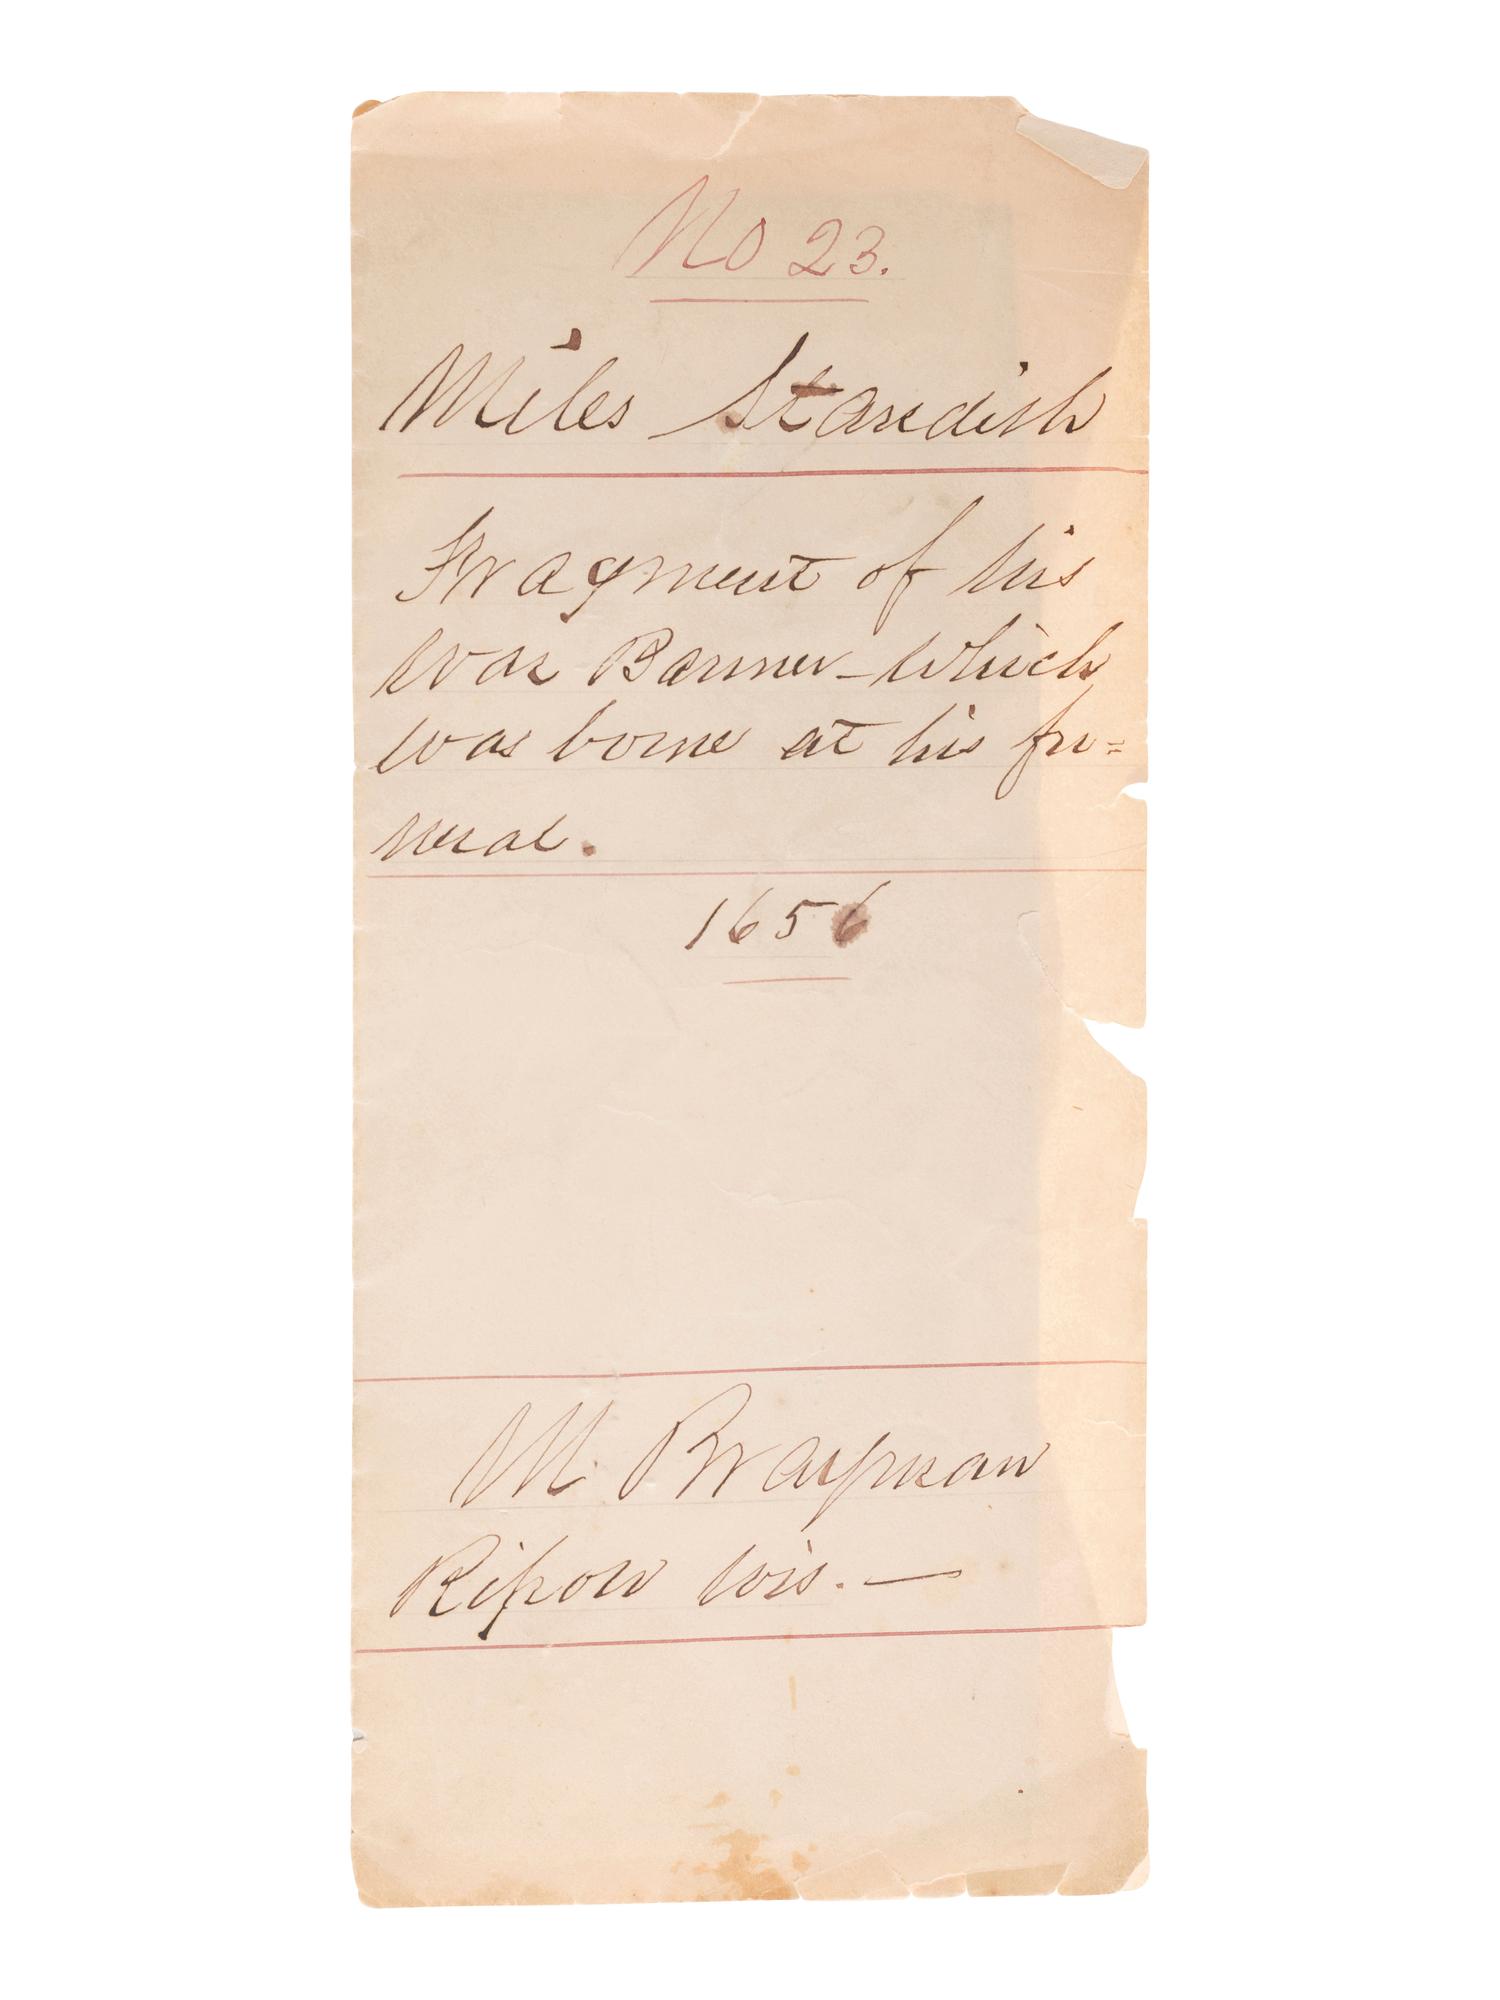 No 23.
Miles Standish
Fragment of his
War Banner - which
was borne at his fu=
neral.
1656
M Brayman
Ripon Wis. —